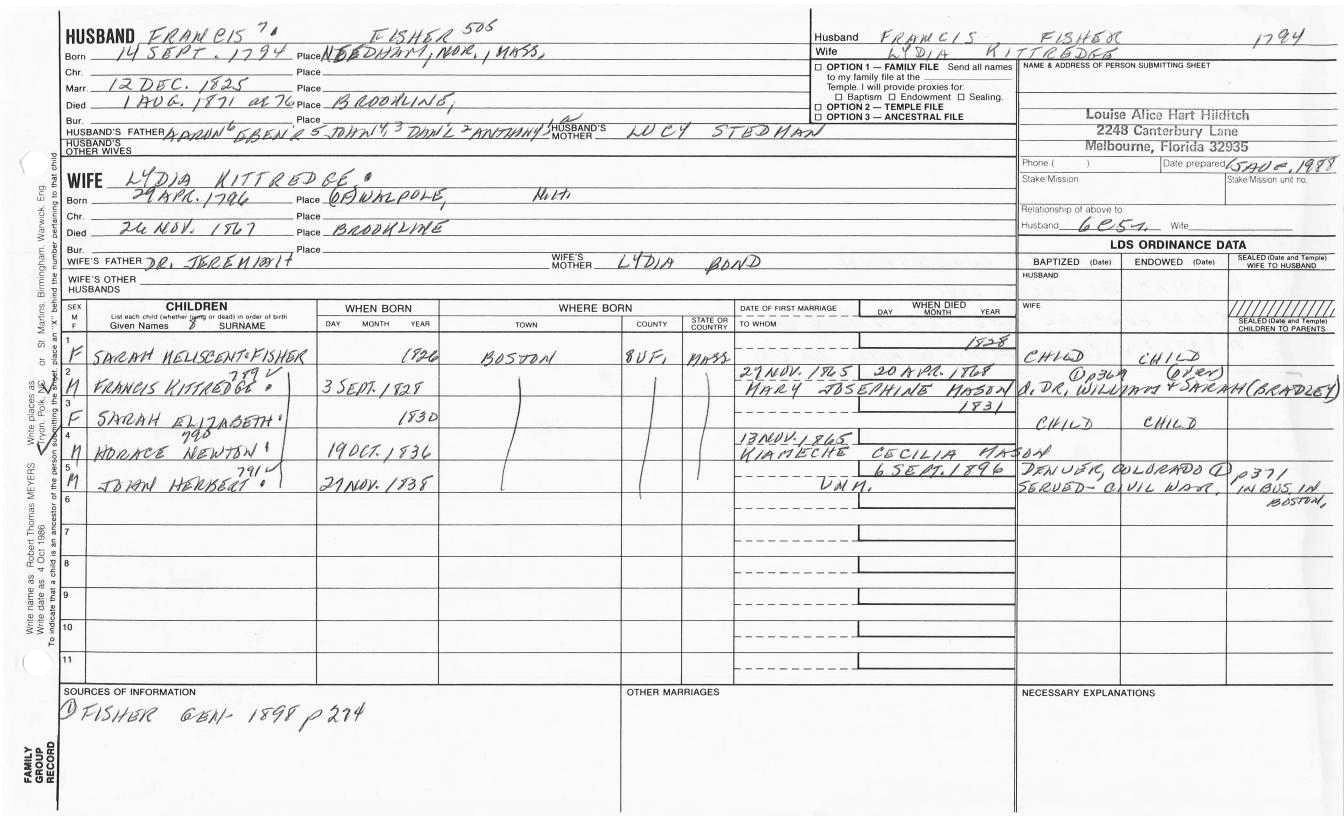 HUSBAND FRANCIS 7. FISHER 505
Born 14 SEPT. 1794 Place NEEDHAM, NOR., MASS.
Chr. Place
Marr. 12 DEC. 1825 Place
Died 1 AUG. 1871 at 76 Place BROOKLINE,
Bur. Place
HUSBAND'S FATHER AARON 6 EBEN'R 5 JOHN 4, 3 DAN'L 2 ANTHONY 1 HUSBAND'S MOTHER LUCY STEDMAN
HUSBAND'S OTHER WIVES
WIFE LYDIA KITTREDGE.
Born 29 APR. 1796 Place (OF) WALPOLE, N.H.
Chr. Place
Died 26 NOV. 1867 Place BROOKLINE
Bur. Place
WIFE'S FATHER DR. JEREMIAH WIFE'S MOTHER LYDIA BOND
WIFE'S OTHER HUSBANDS
Husband FRANCIS FISHER 1794
Wife LYDIA KITTREDGE
☐ OPTION 1 — FAMILY FILE Send all names
to my family file at the
Temple. I will provide proxies for:
☐ Baptism ☐ Endowment ☐ Sealing.
☐ OPTION 2 — TEMPLE FILE
☐ OPTION 3 — ANCESTRAL FILE
NAME & ADDRESS OF PERSON SUBMITTING SHEET
Louise Alice Hart Hilditch
2248 Canterbury Lane
Melbourne, Florida 32935
Phone ( ) Date prepared 15 AUG, 1988
Stake Mission Stake/Mission unit no.
Relationship of above to:
Husband 6C5r. Wife
LDS ORDINANCE DATA
BAPTIZED (Date) ENDOWED (Date) SEALED (Date and Temple) WIFE TO HUSBAND
HUSBAND
WIFE
SEALED (Date and Temple) CHILDREN TO PARENTS
SEX M F CHILDREN WHEN BORN WHERE BORN DATE OF FIRST MARRIAGE WHEN DIED
List each child (whether living or dead) in order of birth
Given Names 8 SURNAME DAY MONTH YEAR TOWN COUNTY STATE OR COUNTRY TO WHOM DAY MONTH YEAR
1 1828
F SARAH MELISCENT. FISHER 1826 BOSTON SUF, MASS CHILD CHILD
2 789 ✓ 27 NOV. 1865 20 APR. 1868 ① p369 (over)
M FRANCIS KITTREDGE. 3 SEPT. 1828 MARY JOSEPHINE MASON d. DR. WILLIAM & SARAH (BRADLEY)
3 1831
F SARAH ELIZABETH. 1830 CHILD CHILD
4 790 13 NOV. 1865
M HORACE NEWTON. 19 OCT. 1836 KIAMECHE CECILIA MASON
5 791 ✓ 6 SEPT. 1896 DENVER, COLORADO ① p371
M JOHN HERBERT. 27 NOV. 1838 UNM. SERVED - CIVIL WAR, IN BUS. IN
BOSTON.
6
7
8
9
10
11
SOURCES OF INFORMATION OTHER MARRIAGES NECESSARY EXPLANATIONS
① FISHER GEN- 1898 p 274
FAMILY
GROUP
RECORD
Write name as Robert Thomas MEYERS Write places as Tryon, Polk, NC or St. Martins, Birmingham, Warwick, Eng.
Write date as 4 Oct 1986
To indicate that a child is an ancestor of the person submitting the sheet, place an "X" behind the number pertaining to that child